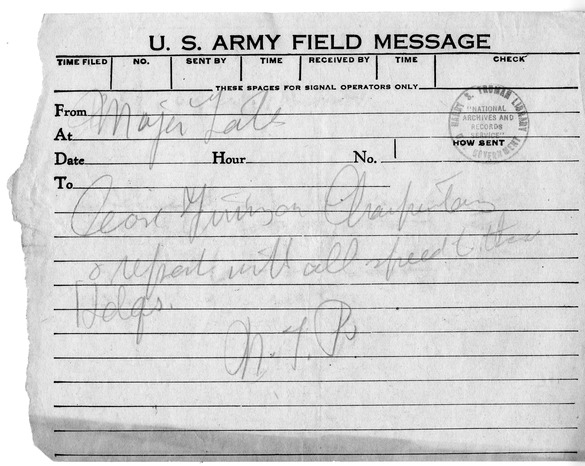 U. S. ARMY FIELD MESSAGE
TIME FILED NO. SENT BY TIME RECEIVED BY TIME CHECK
THESE SPACES FOR SIGNAL OPERATORS ONLY
From Major Gates
At
HARRY S. TRUMAN LIBRARY
"NATIONAL
ARCHIVES AND
RECORDS
SERVICE"
HOW SENT
Date Hour No.
To
Cease Firing on
& report with all speed to these
Hdqs.